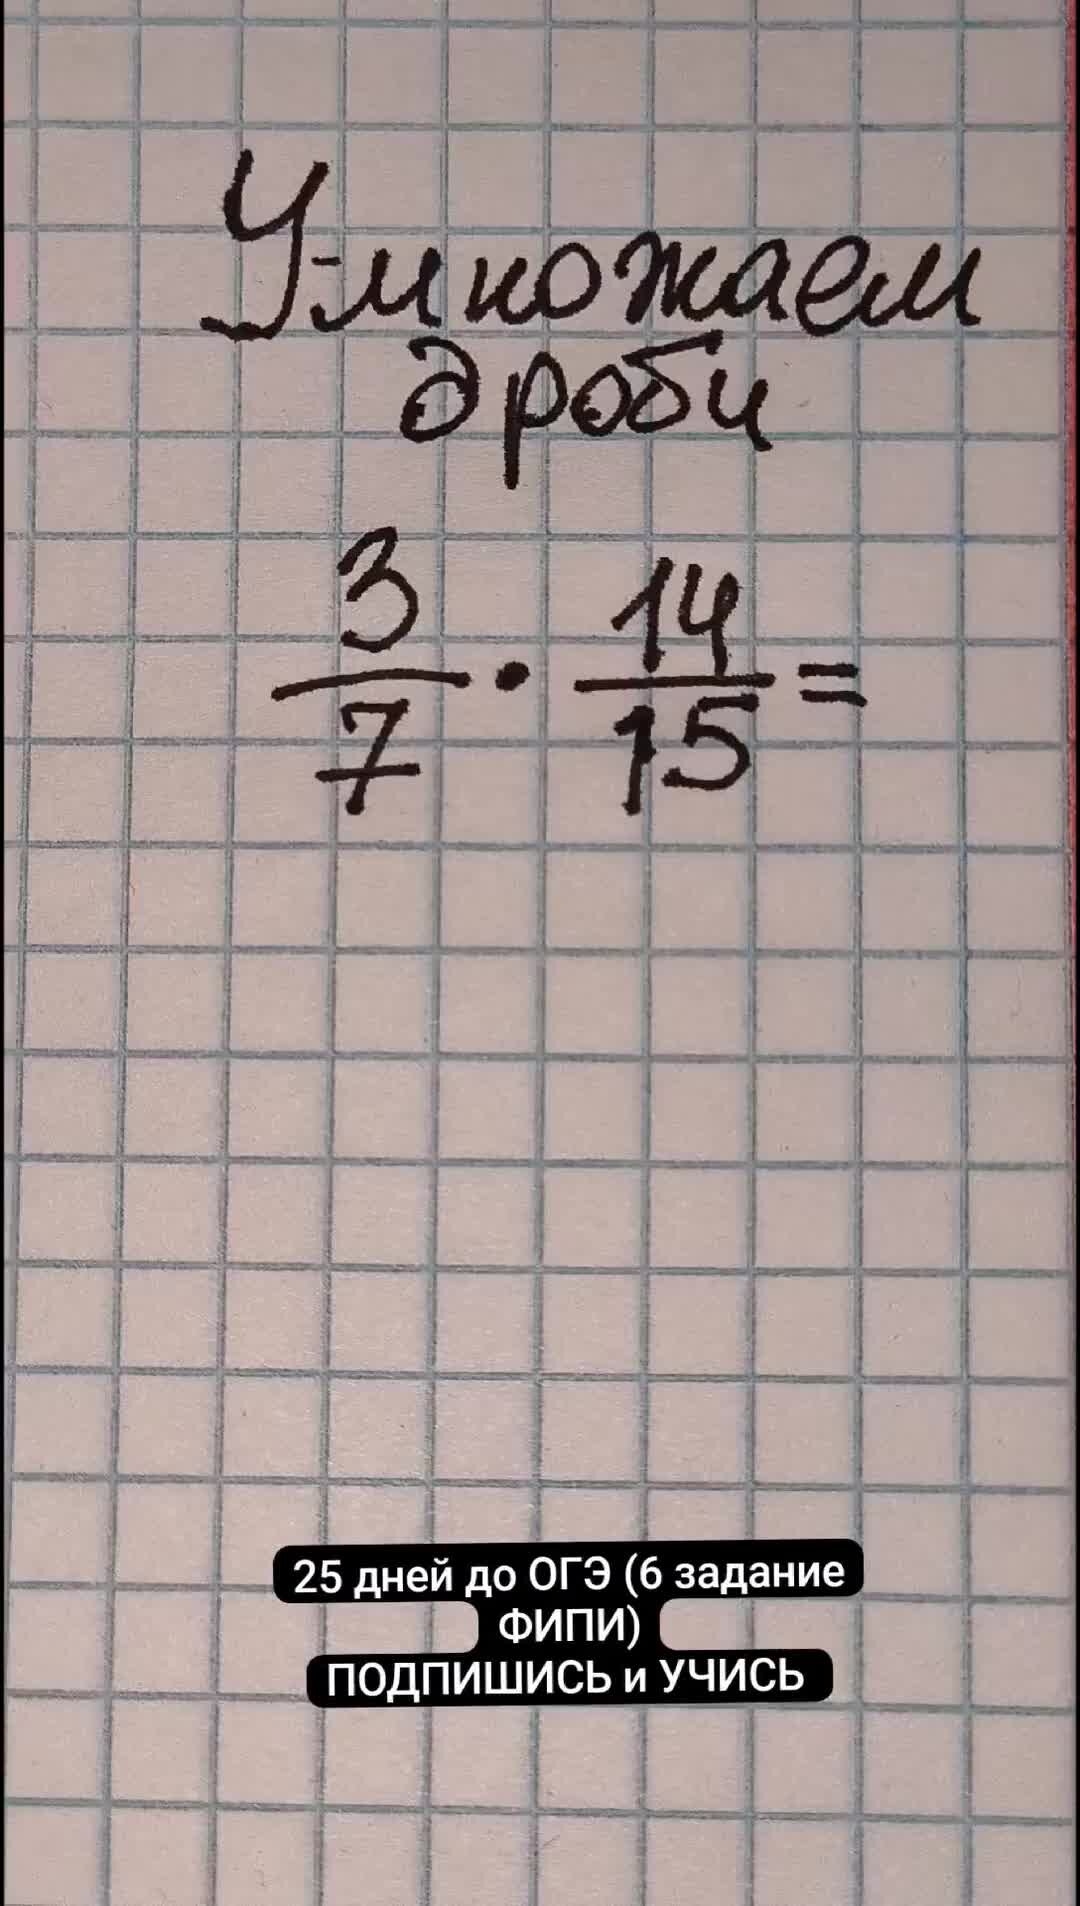 Умножаем
дроби
3/7 · 14/15 =
25 дней до ОГЭ (6 задание
ФИПИ)
ПОДПИШИСЬ и УЧИСЬ